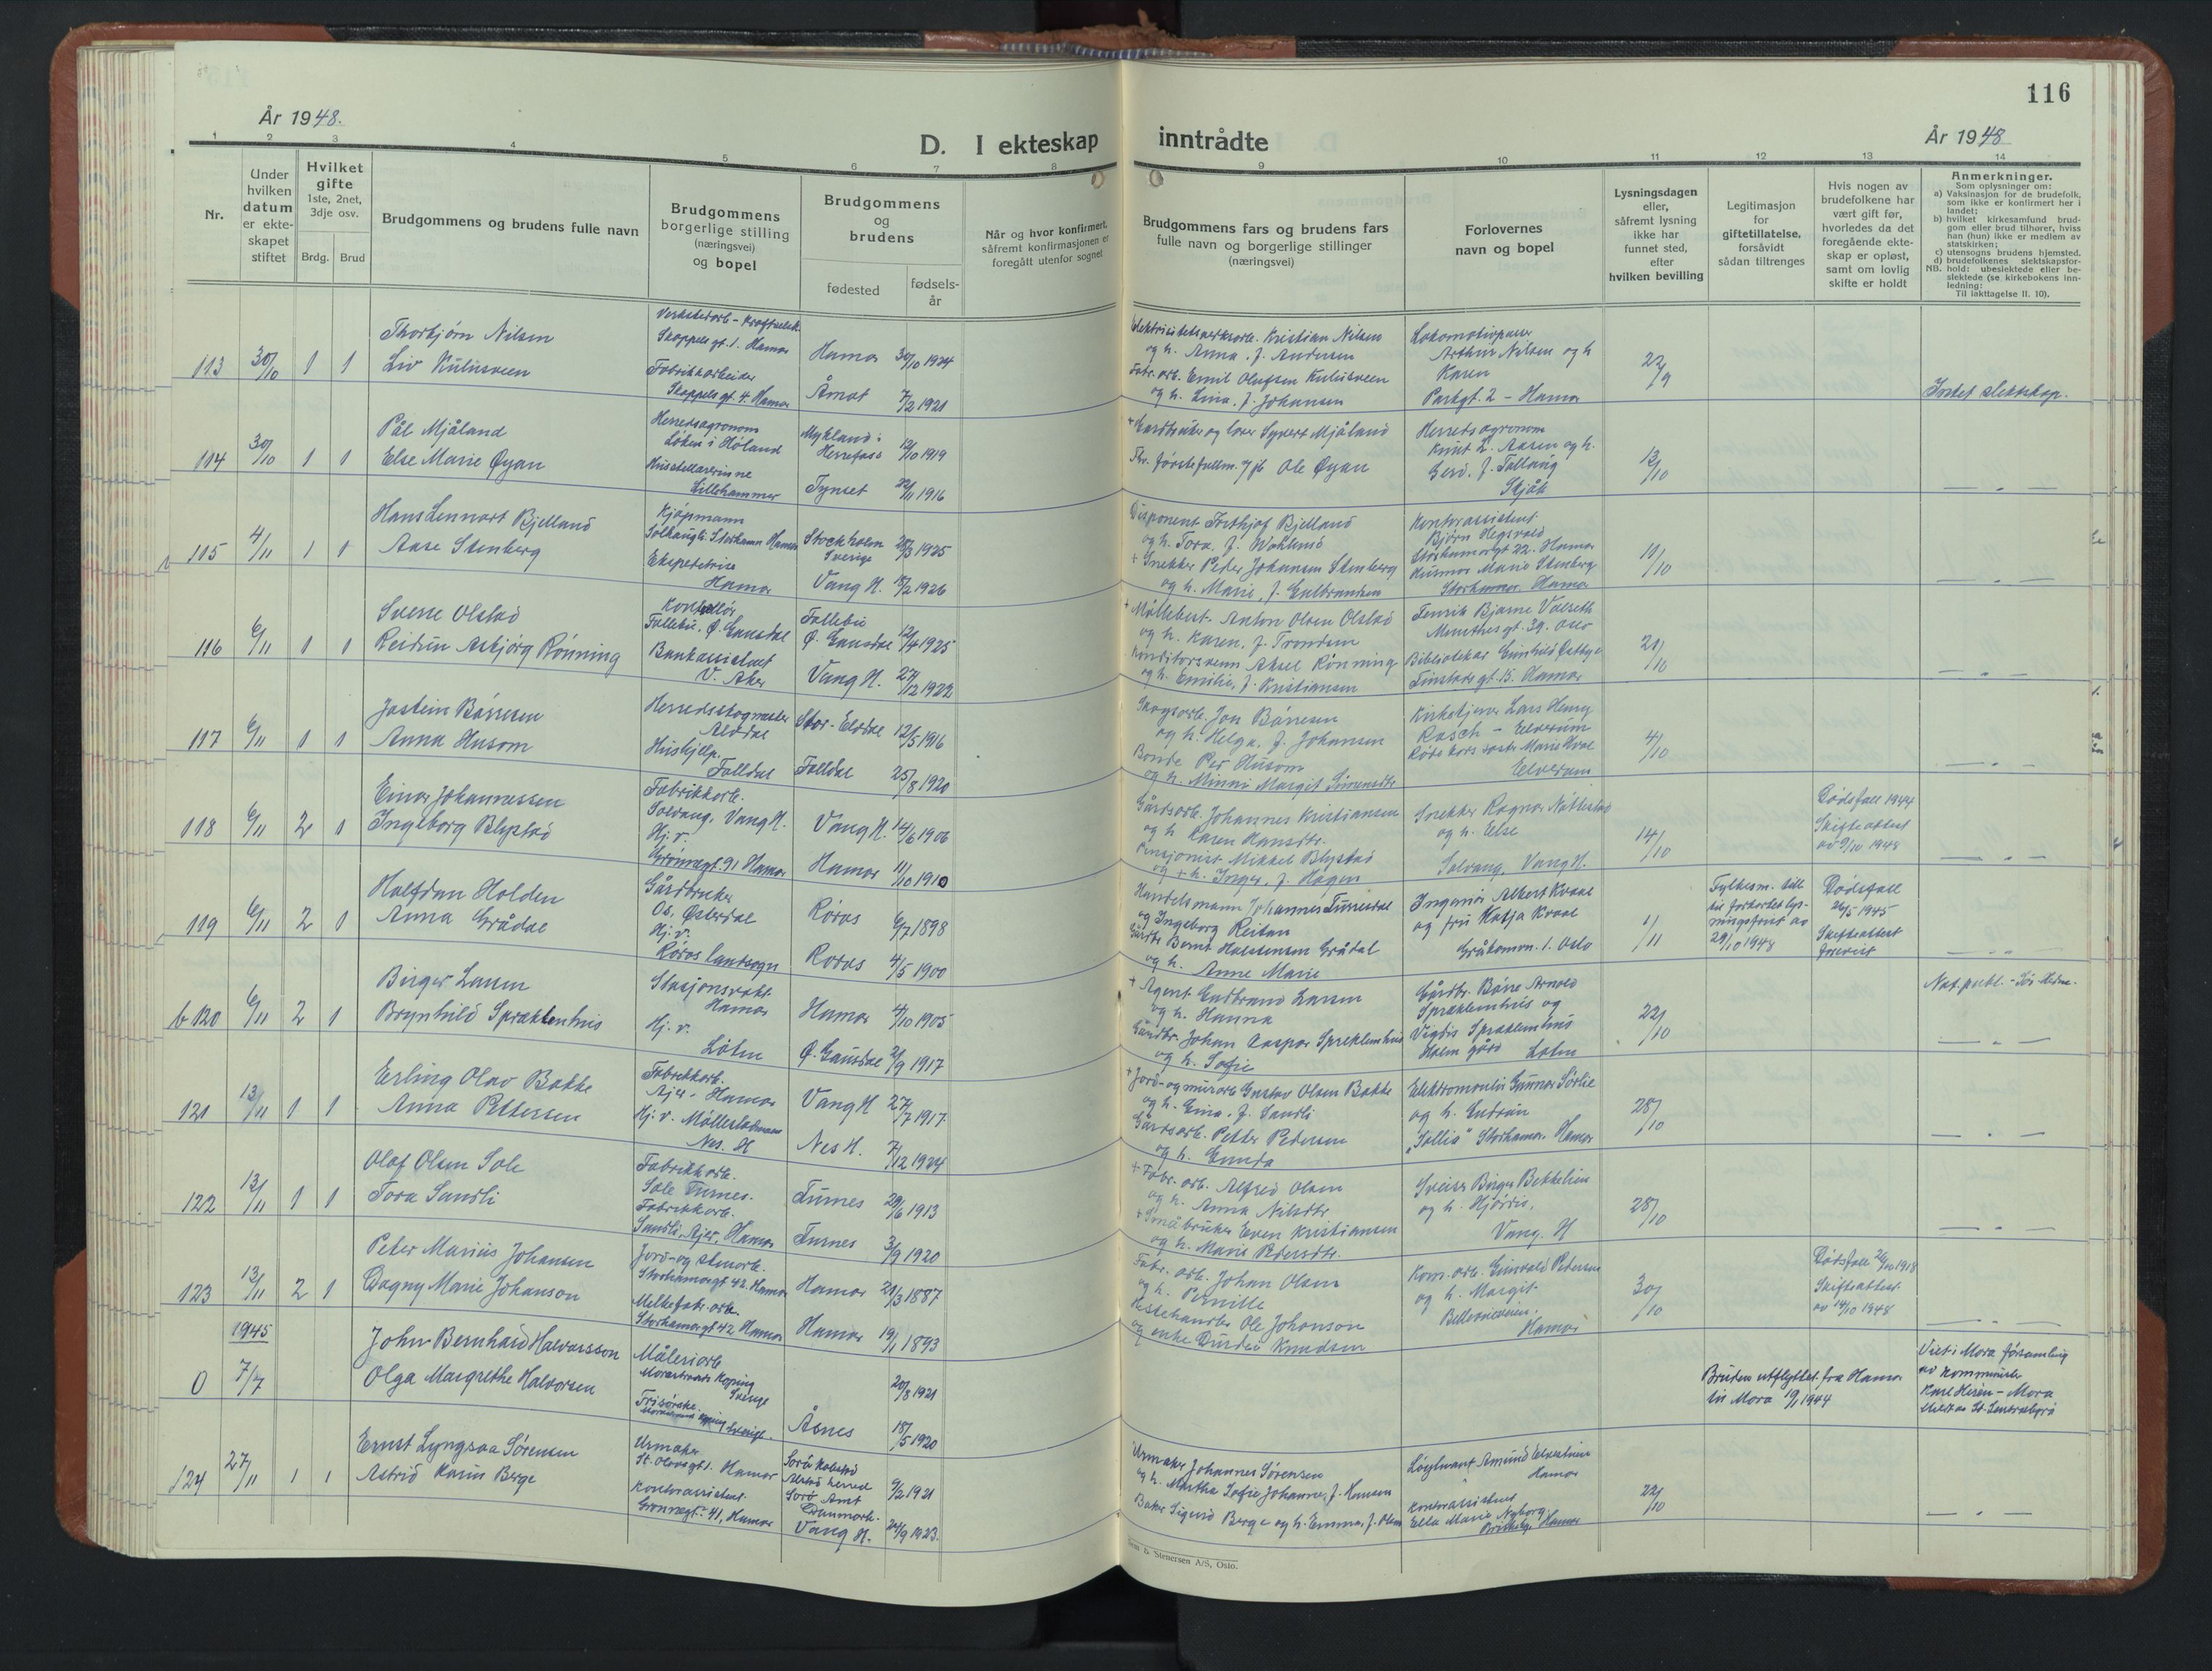 116
År 1948.
År 1948
D. I ekteskap inntrådte
1 2 3 4 5 6 7 8 9 10 11 12 13 14
Nr.
Under hvilken datum er ekte-skapet stiftet
Hvilket gifte
1ste, 2net, 3dje osv.
Brdg. Brud
Brudgommens og brudens fulle navn
Brudgommens borgerlige stilling (næringsvei) og bopel
Brudgommens og brudens
fødested
fødsels-år
Når og hvor konfirmert, såfremt konfirmasjonen er foregått utenfor sognet
Brudgommens fars og brudens fars fulle navn og borgerlige stillinger (næringsvei)
Forlovernes navn og bopel
Lysningsdagen eller, såfremt lysning ikke har funnet sted, efter hvilken bevilling
Legitimasjon for giftetillatelse, forsåvidt sådan tiltrenges
Hvis nogen av brudefolkene har vært gift før, hvorledes da det foregående ekte-skap er opløst, samt om lovlig skifte er holdt
Anmerkninger.
Som oplysninger om:
a) Vaksinasjon for de brudefolk, som ikke er konfirmert her i landet;
b) hvilket kirkesamfund brud-gom eller brud tilhører, hviss han (hun) ikke er medlem av statskirken;
c) utensogns brudens hjemsted.
d) brudefolkenes slektskapsfor-
NB. hold: ubeslektede eller be-slektede (se kirkebokens inn-ledning:
Til iakttagelse II. 10).
113 30/10 1 1
Thorbjørn Nilsen
Liv Kulusveen
Verkstedarb. - Kraftselsk.
Skappels gt. 1. Hamar
Fabrikkarbeider
Skappels gt. 4. Hamar
Hamar 30/10 1924
Åmot 7/2 1921
Elektricitetsverksarb. Kristian Nilsen
og h. Anna, f. Andersen
Fabr. arb. Emil Olufsen Kulusveen
og h. Lina, f. Johansen
Lokomotivpusser
Arthur Nilsen og h
Karen
Parkgt. 2 - Hamar
22/9
Intet slektskap.
114 30/10 1 1
Pål Mjåland
Else Marie Øyan
Herredsagronom
Løken i Høland
Husstellærerinne
Lillehammer
Mykland i
Herefoss 12/10 1919
Tynset 22/11 1916
+ Gardbruker og lærer Syvert Mjåland
Ole Øyan
Herredsagronom
Knut L. Aasen og h.
Gerd, f.
Skjåk
13/10
— " —
115 4/11 1 1
Hans Lennart Bjelland
Aase Stenberg
Kjøpmann
Storhamar Hamar
Ekspeditrise
Hamar
Stockholm
Sverige 28/3 1925
Vang H. 18/2 1926
Disponent Frithjof Bjelland
og h. Tora, f.
+ Snekker Peder Johansen Stenberg
og h. Marie, f. Gulbrandsen
Kontorassistent
Bjørn Hegsvold
Storhamargt 22. Hamar
Husmor Marie Stenberg
Storhamar. Hamar
19/10
— " —
116 6/11 1 1
Sverre Olstad
Reidun Asbjørg Rønning
Kontrollør
Follebu, Ø. Gausdal
Bankassistent
V. Aker
Follebu
Ø. Gausdal 12/4 1925
Vang H. 27/12 1922
+ Møllebest. Anton Olsen Olstad
og h. Karen, f. Trondsen
Konditorsvenn Aksel Rønning
og h. Emilie, f. Kristiansen
Fenrik Bjarne Valseth
Munthes gt. 39. Oslo
Bibliotekar Gunhild Østbye
Finstads gt. 15. Hamar
21/10
— " —
117 6/11 1 1
Jostein Børresen
Anna Husom
Herredsskogmester
Alvdal
Hushjelp.
Folldal
Stor-Elvdal 12/5 1916
Folldal 25/8 1920
Skogsarb. Jon Børresen
og h. Helga, f. Johansen
Bonde Per Husom
og h. Minni Margit Simensdtr
Kirketjener Lars Henry
Rasch - Elverum
Røde kors søster Marie Hvae
Elverum
4/10
— " —
118 6/11 2 1
Einar Johannessen
Ingeborg Blystad
Fabrikkarb.
Solvang, Vang H.
Hj. v.
Grønnegt. 91 Hamar
Vang H. 14/6 1906
Hamar 11/10 1910
Gårdsarb. Johannes Kristiansen
og h. Karen Hansdtr.
Pensjonist Mikkel Blystad
og + h. Inger, f. Hagen
Snekker Ragnar Nøttestad
og h. Else
Solvang, Vang H.
14/10
Dødsfall 1944
Skifteattest
av 9/10 1948
— " —
119 6/11 2 1
Halfdan Holden
Anna Grådal
Gårdbruker
Os, Østerdal
Hj. v.
Røros landsogn
Røros 6/7 1898
Røros 4/5 1900
Handelsmann Johannes
og Ingeborg Reitan
Gårdbr. Bernt Halstensen Grådal
og h. Anne Marie
Ingeniør Albert Kvaal
og fru Katja Kvaal
Gråkamvn. 1. Oslo
1/11
Fylkesm. till.
til forkortet lys-
ningsfrist av
29/10 1948
Dødsfall
26/5 1945
Skifteattest
forevist
— " —
b 120 6/11 2 1
Birger Larsen
Brynhild Spræklenhus
Stasjonsvakt
Hamar
Hj. v.
Løten
Hamar 4/10 1905
Ø. Gausdal 21/9 1917
+ Agent Gudbrand Larsen
og h. Hanna
Gårdbr. Johan Caspar Spreklemhus
og h. Sofie
Gårdbr. Børre Arnold
Spreklemhus og
Vigdis Spreklemhus
Holm gård Løten
22/10
Nat. publ. - Sør Hedm.
— " —
121 13/11 1 1
Erling Olav Bakke
Anna Pettersen
Fabrikkarb.
Ajer. Hamar
Hj. v.
Nes. H
Vang H 27/7 1917
Nes H. 7/12 1924
+ Jord- og murarb. Gustav Olsen Bakke
og h. Gina, f. Sandli
Gårdsarb. Petter Pedersen
og h. Gunda
Elektromontør Gunnar Sørlie
og h. Gudrun
"Sollia" Storhamar. Hamar
28/10
— " —
122 13/11 1 1
Olaf Olsen Sole
Tora Sandli
Fabrikkarb.
Sole Furnes.
Fabrikkarb.
Sandli, Ajer, Hamar
Furnes 29/6 1913
Furnes 3/9 1920
+ Fabr. arb. Alfred Olsen
og h. Anna Nilsdtr
+ Småbruker Even Kristiansen
og h. Marie Pedersdtr.
Sveiser Birger Bekkelien
og h. Hjørdis.
Vang. H
28/10
— " —
123 13/11 2 1
Peter Marius Johansen
Dagny Marie Johanson
Jord- og stenarb.
Storhamargt 42. Hamar
Melkefabr. arb.
Storhamargt 42 Hamar
Hamar 21/3 1887
Hamar 19/1 1893
Fabr. arb. Johan Olsen
og h. Pernille
Hestehandler Ole Johanson
og enke Durdei Knudsen
Kom. arb. Gunvald Petersen
og h. Margit
Bellevueveien.
Hamar
30/10
Dødsfall 26/10 1918
Skifteattest
av 14/10 1948
— " —
1945
0 7/7
John Bernhard Halvarsson
Olga Margrethe Halvorsen
Måleriarb
Morastrands Köping
Sverige
Frisørske.
Sverige.
20/8 1921
Åsnes 18/5 1920
Bruden utflyttet fra Hamar
til Mora 19/1 1944
Viet i Mora församling
av Komminister
Karl Herén - Mora
Meldt av St. Sentralbyrå
124 27/11 1 1
Ernst Lyngsaa Sørensen
Astrid Karin Berge
Urmaker
St. Olavsgt 1. Hamar
Kontorassistent.
Grønnegt. 41, Hamar
Sorø Købstad
Alsted herred
Sorø Amt
Danmark. 9/2 1921
Vang H. 24/9 1923.
Urmaker Johannes Sørensen
og h. Martha Sofie Johanne, f. Hansen
Baker Sigurd Berge og h. Emma, f. Olsen
Løytnant Amund Elvestuen
Hamar
Kontorassistent
Ella Marie Nyborg
Briskebyv. Hamar
22/10
— " —
Stenersen A/S, Oslo.